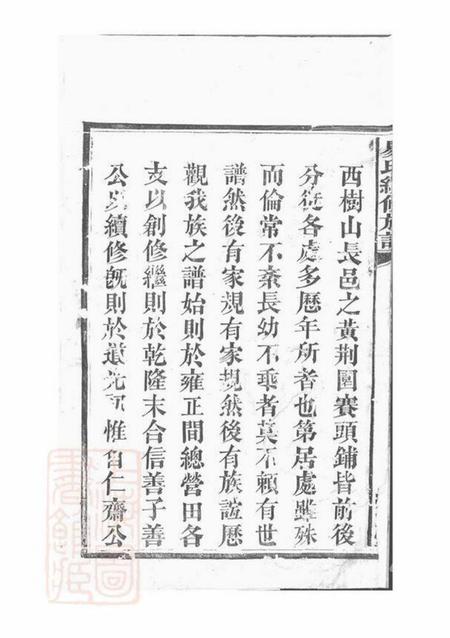 易氏續修族譜
西樹山長邑之黃荆園賽頭鋪皆前後
分徙各處多歷年所者也第居處雖殊
而倫常不紊長幼不乖者莫不賴有世
譜然後有家規有家規然後有族誼歷
觀我族之譜始則於雍正間總營田各
支以創修繼則於乾隆末合信善子善
公以續修旣則於道光 惟自仁齋公